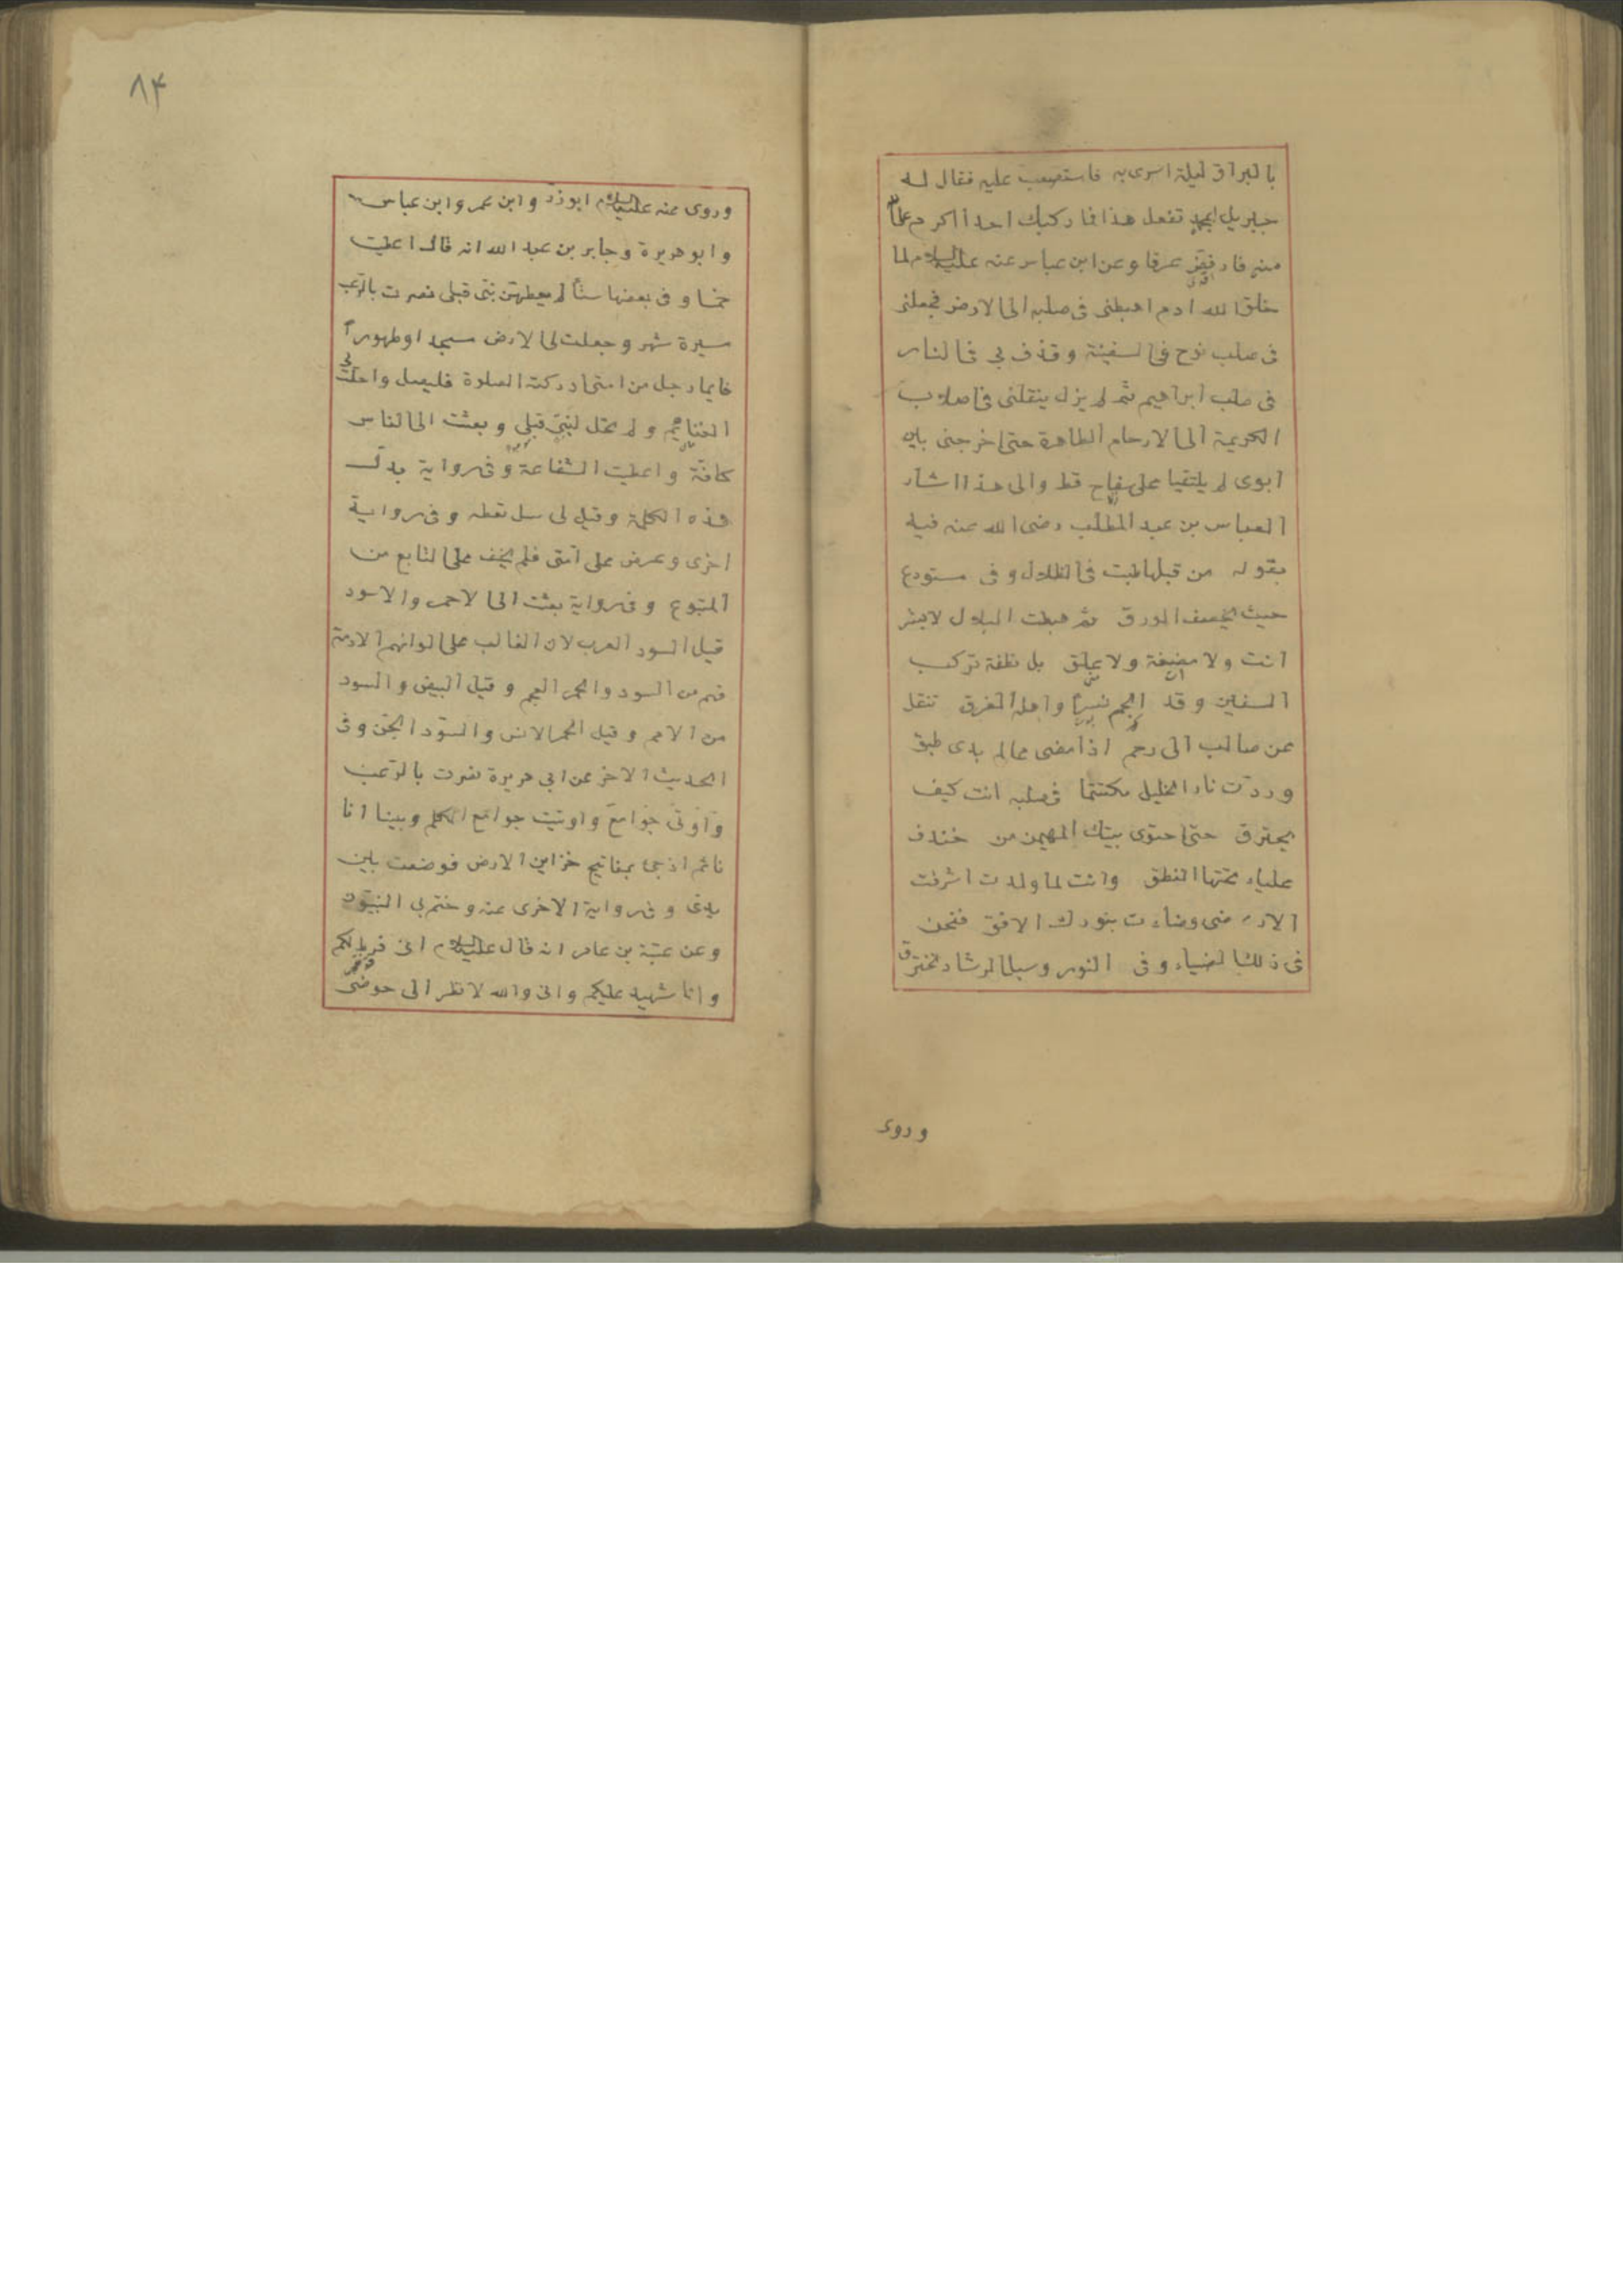 بالبراق ليلة اسرى به فاستصعب عليه فقال له
جبريل ابمحمد تفعل هذا فما ركبك احد اكرم على الله
منه فارفض عرقا وعن ابن عباس عنه عليه السلام لما
خلق الله ادم اهبطنى فى صلبه الى الارض فجعلنى
فى صلب نوح فى السفينة وقذف بى فى النار
فى صلب ابراهيم ثم لم يزل ينقلنى فى اصلاب
الكريمة الى الارحام الطاهرة حتى اخرجنى بين
ابوى لم يلتقيا على سفاح قط والى هذا اشار
العباس بن عبد المطلب رضى الله عنه فيه
بقوله من قبلها طبت فى الظلال و فى مستودع
حيث يخصف الورق ثم هبطت البلاد لا بشر
انت ولا مضغة ولا علق بل نطفة تركب
السفين وقد الجم نسرا واهله الغرق تنقل
عن صالب الى رحم اذا مضى عالم بدى طبق
وردت نار الخليل مكتتما فى صلبه انت كيف
يحترق حتى احتوى بيتك المهيمن من خندف
علياء تحتها النطق وانت لما ولدت اشرقت
الارض وضاءت بنورك الافق فنحن
فى ذلك الضياء وفى النور وسبل الرشاد نخترق
وروى
٨٤
وروى عنه عليه السلام ابوذر وابن عمر وابن عباس
وابو هريرة وجابر بن عبد الله انه قال اعطيت
خمسا وفى بعضها ستا لم يعطهن نبى قبلى نصرت بالرعب
مسيرة شهر وجعلت لى الارض مسجدا وطهورا
فايما رجل من امتى ادركته الصلوة فليصل واحلت لى
الغنايم ولم تحل لنبى قبلى وبعثت الى الناس
كافة واعطيت الشفاعة وفى رواية بدل
هذه الكلمة وقيل لى سل تعطه وفى رواية
اخرى وعرض على امتى فلم يخف على التابع من
المتبوع وفى رواية بعثت الى الاحمر والاسود
قيل السود العرب لان الغالب على الوانهم الادمة
فهم من السود والحمر العجم وقيل البيض والسود
من الامم وقيل الحمر الانس والسود الجن وفى
الحديث الاخر عن ابى هريرة نصرت بالرعب
واوتيت جوامع الكلم وبينا انا
نائم اذ جئ بمفاتيح خزاين الارض فوضعت بين
يدى وفى رواية الاخرى عنه وختم بى النبيون
وعن عقبة بن عامر انه قال عليه السلام انى فرط لكم
وانا شهيد عليكم وانى والله لانظر الى حوضى